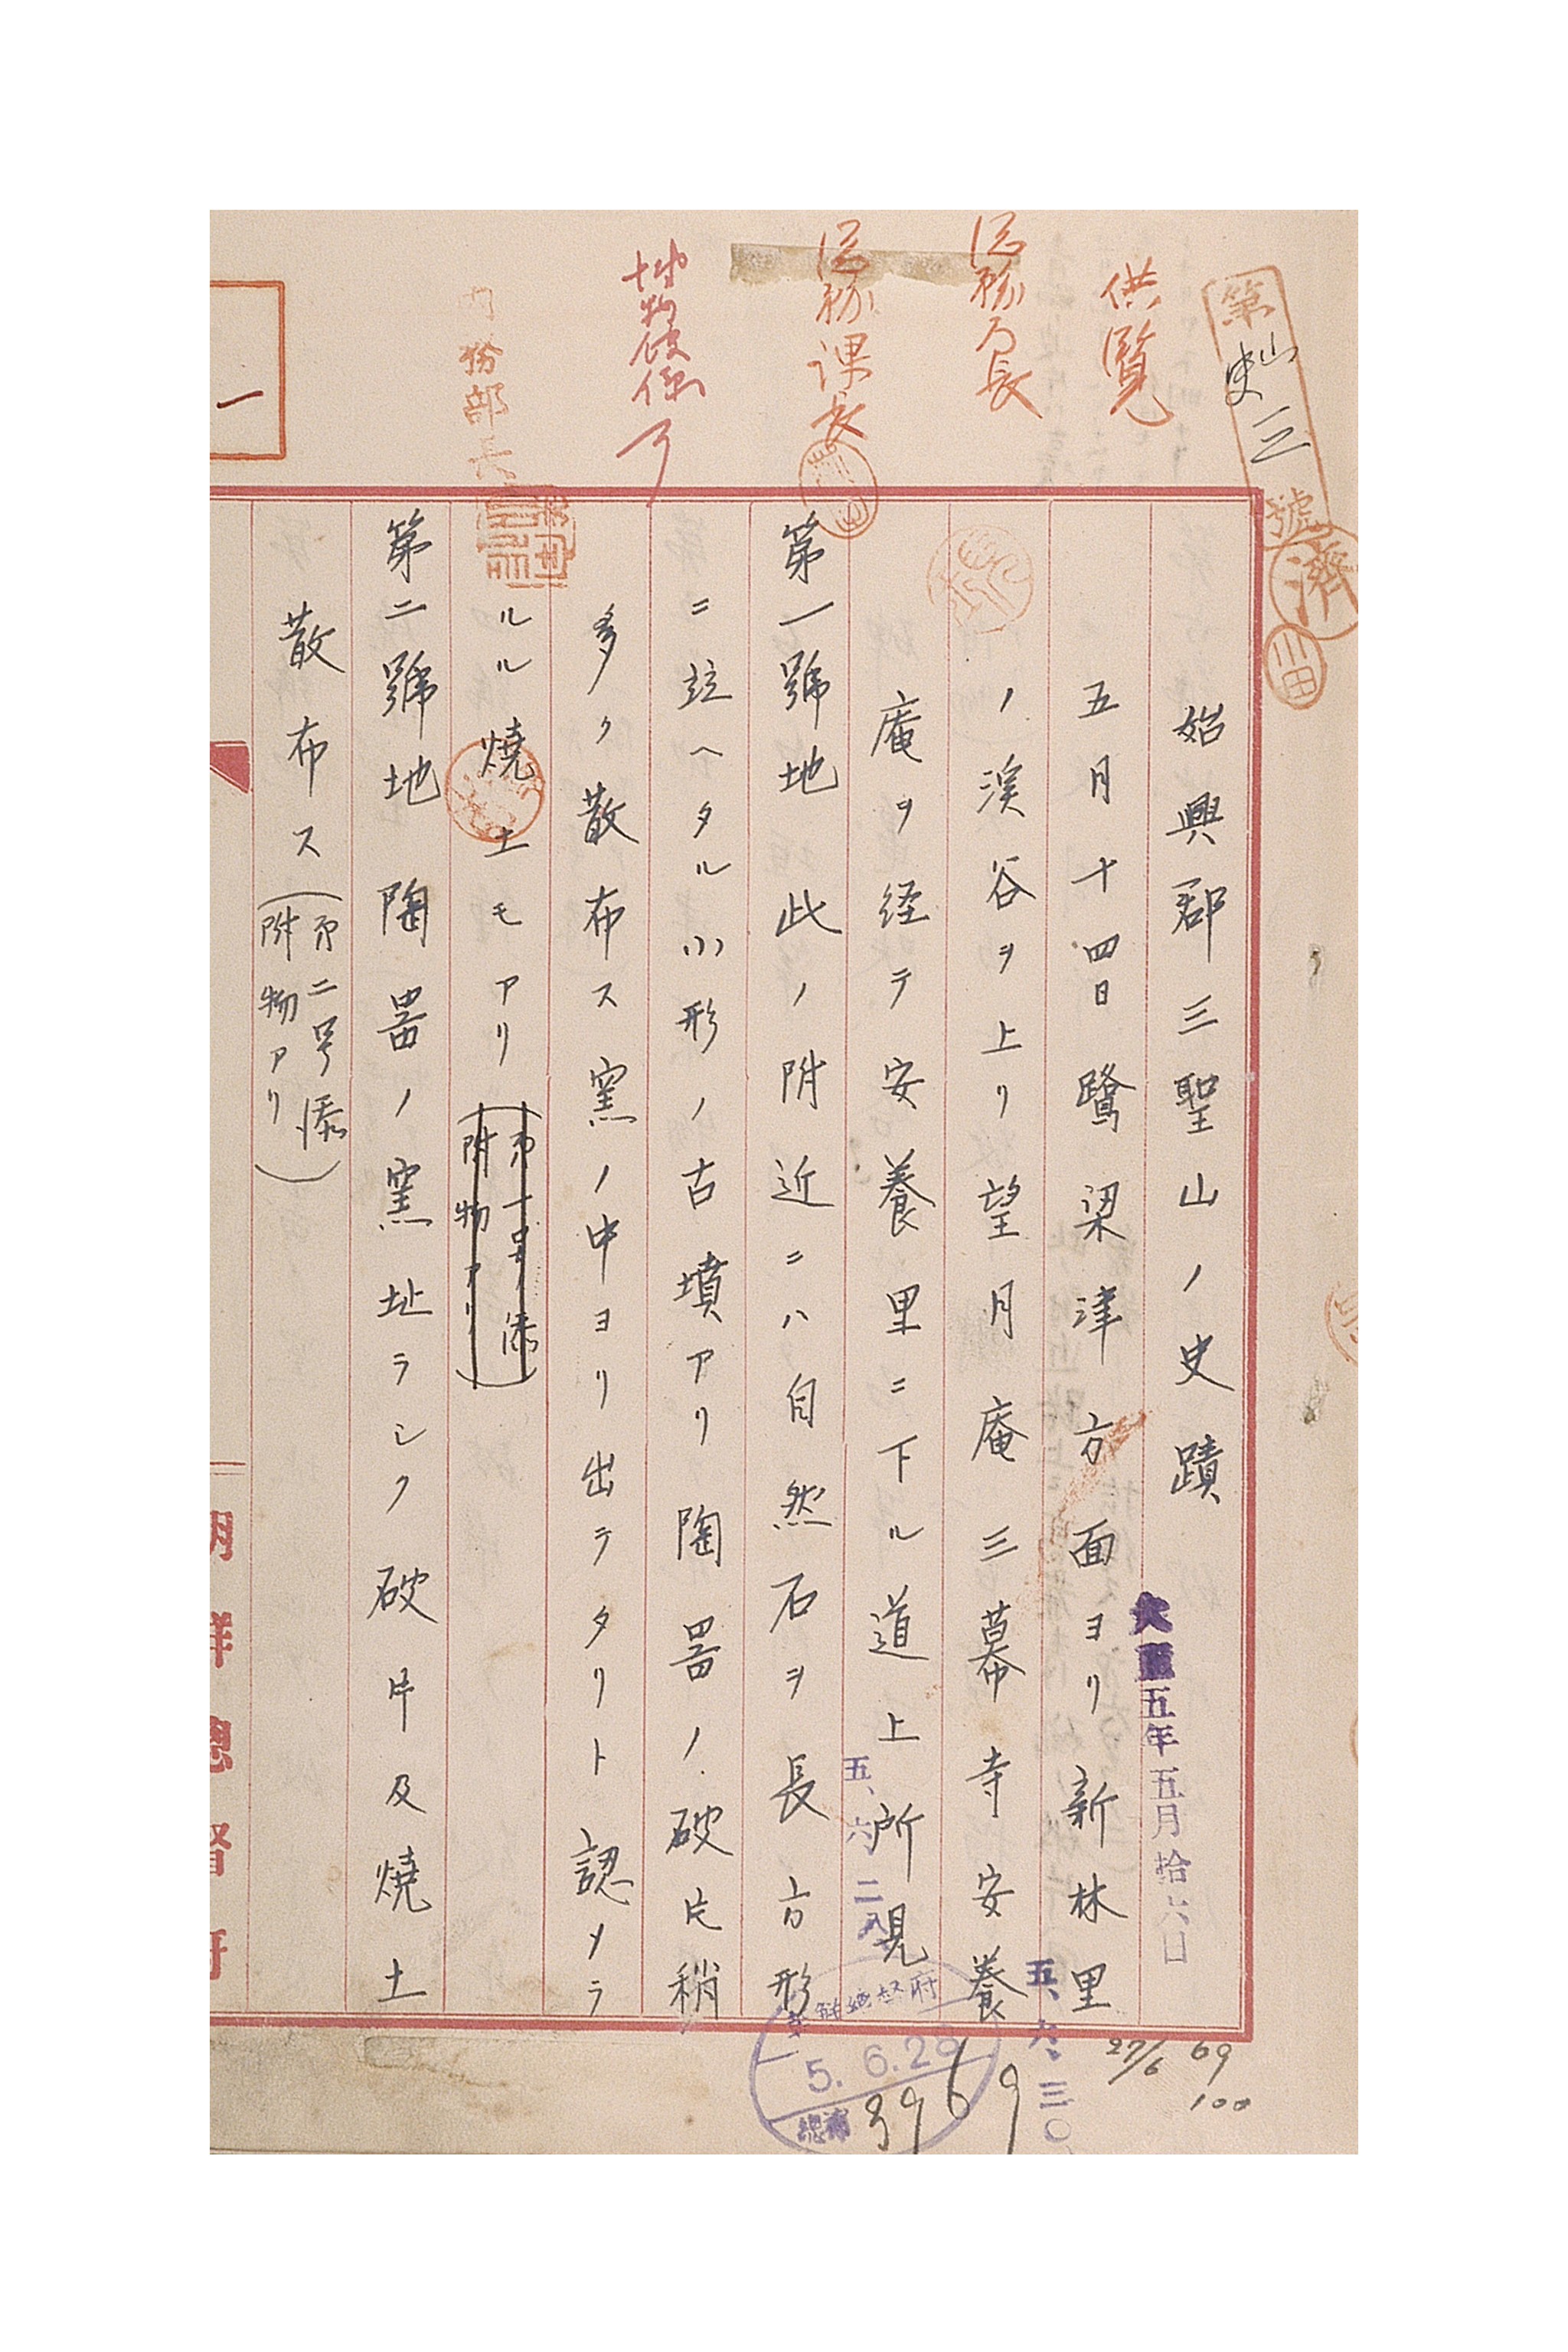 供覧
総務局長
総務課長
博物館係
内務部長
第
三
號
濟
始興郡三聖山ノ史蹟
大正五年五月拾六日
五月十四日鷺梁津方面ヨリ新林里
ノ渓谷ヲ上リ望月庵三幕寺安養
庵ヲ経テ安養里ニ下ル道上所見
第一號地 此ノ附近ニハ自然石ヲ長方形
ニ竝ヘタル小形ノ古墳アリ陶器ノ破片稍
多ク散布ス窯ノ中ヨリ出テタリト認メラ
ルル焼土モアリ(第一号添附物アリ)
第二號地 陶器ノ窯址ラシク破片及焼土
散布ス(第二号添附物アリ)
一
朝鮮總督府
五、六、二八
五、六、三〇、
朝鮮総督府
5.6.28
3969
27/6
69
100